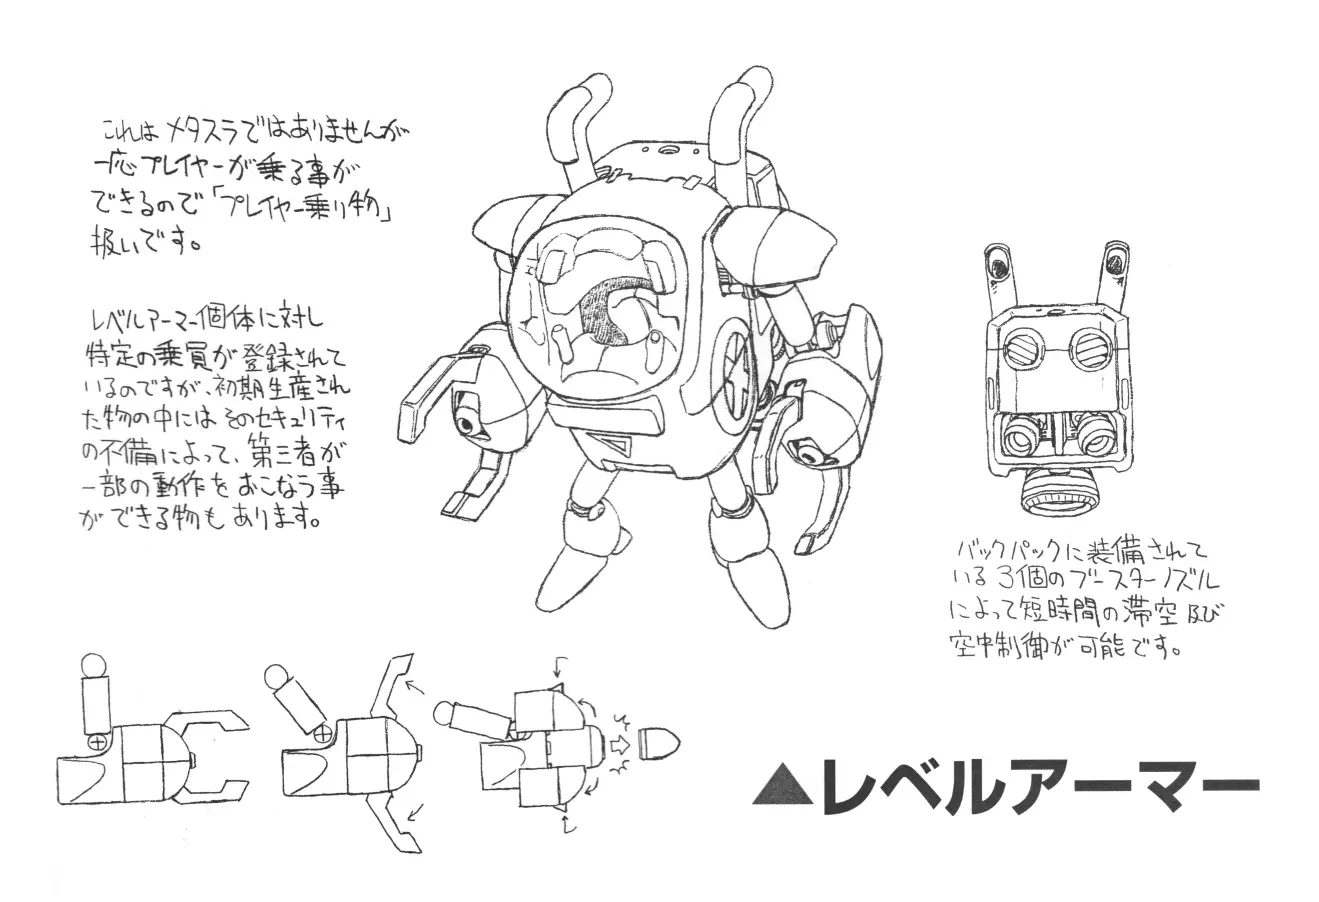 これはメタスラではありませんが
一応プレイヤーが乗る事が
できるので「プレイヤー乗り物」
扱いです。
レベルアーマー個体に対し
特定の乗員が登録されて
いるのですが、初期生産され
た物の中にはそのセキュリティ
の不備によって、第三者が
一部の動作をおこなう事
ができる物もあります。
バックパックに装備されて
いる3個のブースターノズル
によって短時間の滞空及び
空中制御が可能です。
▲レベルアーマー